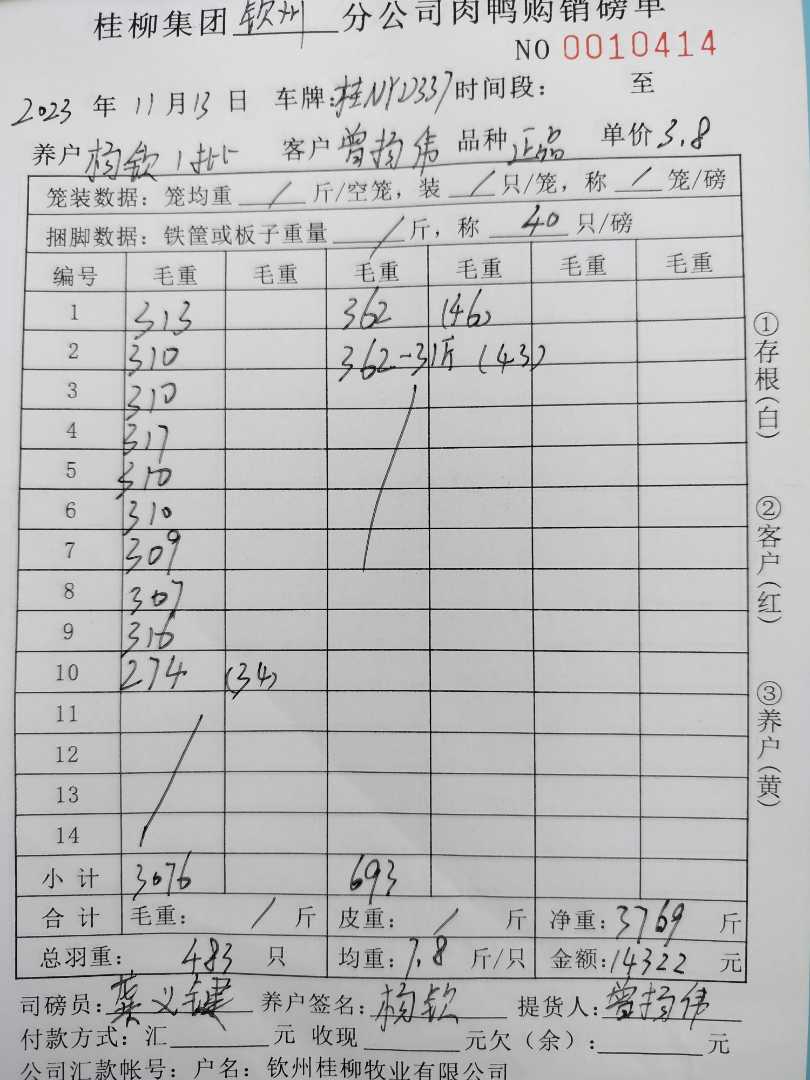 桂柳集团 钦州 分公司肉鸭购销磅单
NO 0010414
2023 年 11 月 13 日 车牌:桂NY2337 时间段: 至
养户 杨钦 1批 客户 曾扬伟 品种 正品 单价 3.8
笼装数据:笼均重 / 斤/空笼,装 / 只/笼,称 / 笼/磅
捆脚数据:铁筐或板子重量 / 斤,称 40 只/磅
编号 毛重 毛重 毛重 毛重 毛重 毛重
1 313 362 (46)
2 310 362-31斤 (43)
3 310
4 317
5 310
6 310
7 309
8 307
9 316
10 274 (34)
11
12
13
14
小计 3076 693
合计 毛重: / 斤 皮重: / 斤 净重:3769 斤
总羽重: 483 只 均重:7.8 斤/只 金额:14322 元
司磅员:龚义键 养户签名:杨钦 提货人:曾扬伟
付款方式:汇 元 收现 元欠(余): 元
公司汇款帐号:户名:钦州桂柳牧业有限公司
①存根(白)
②客户(红)
③养户(黄)